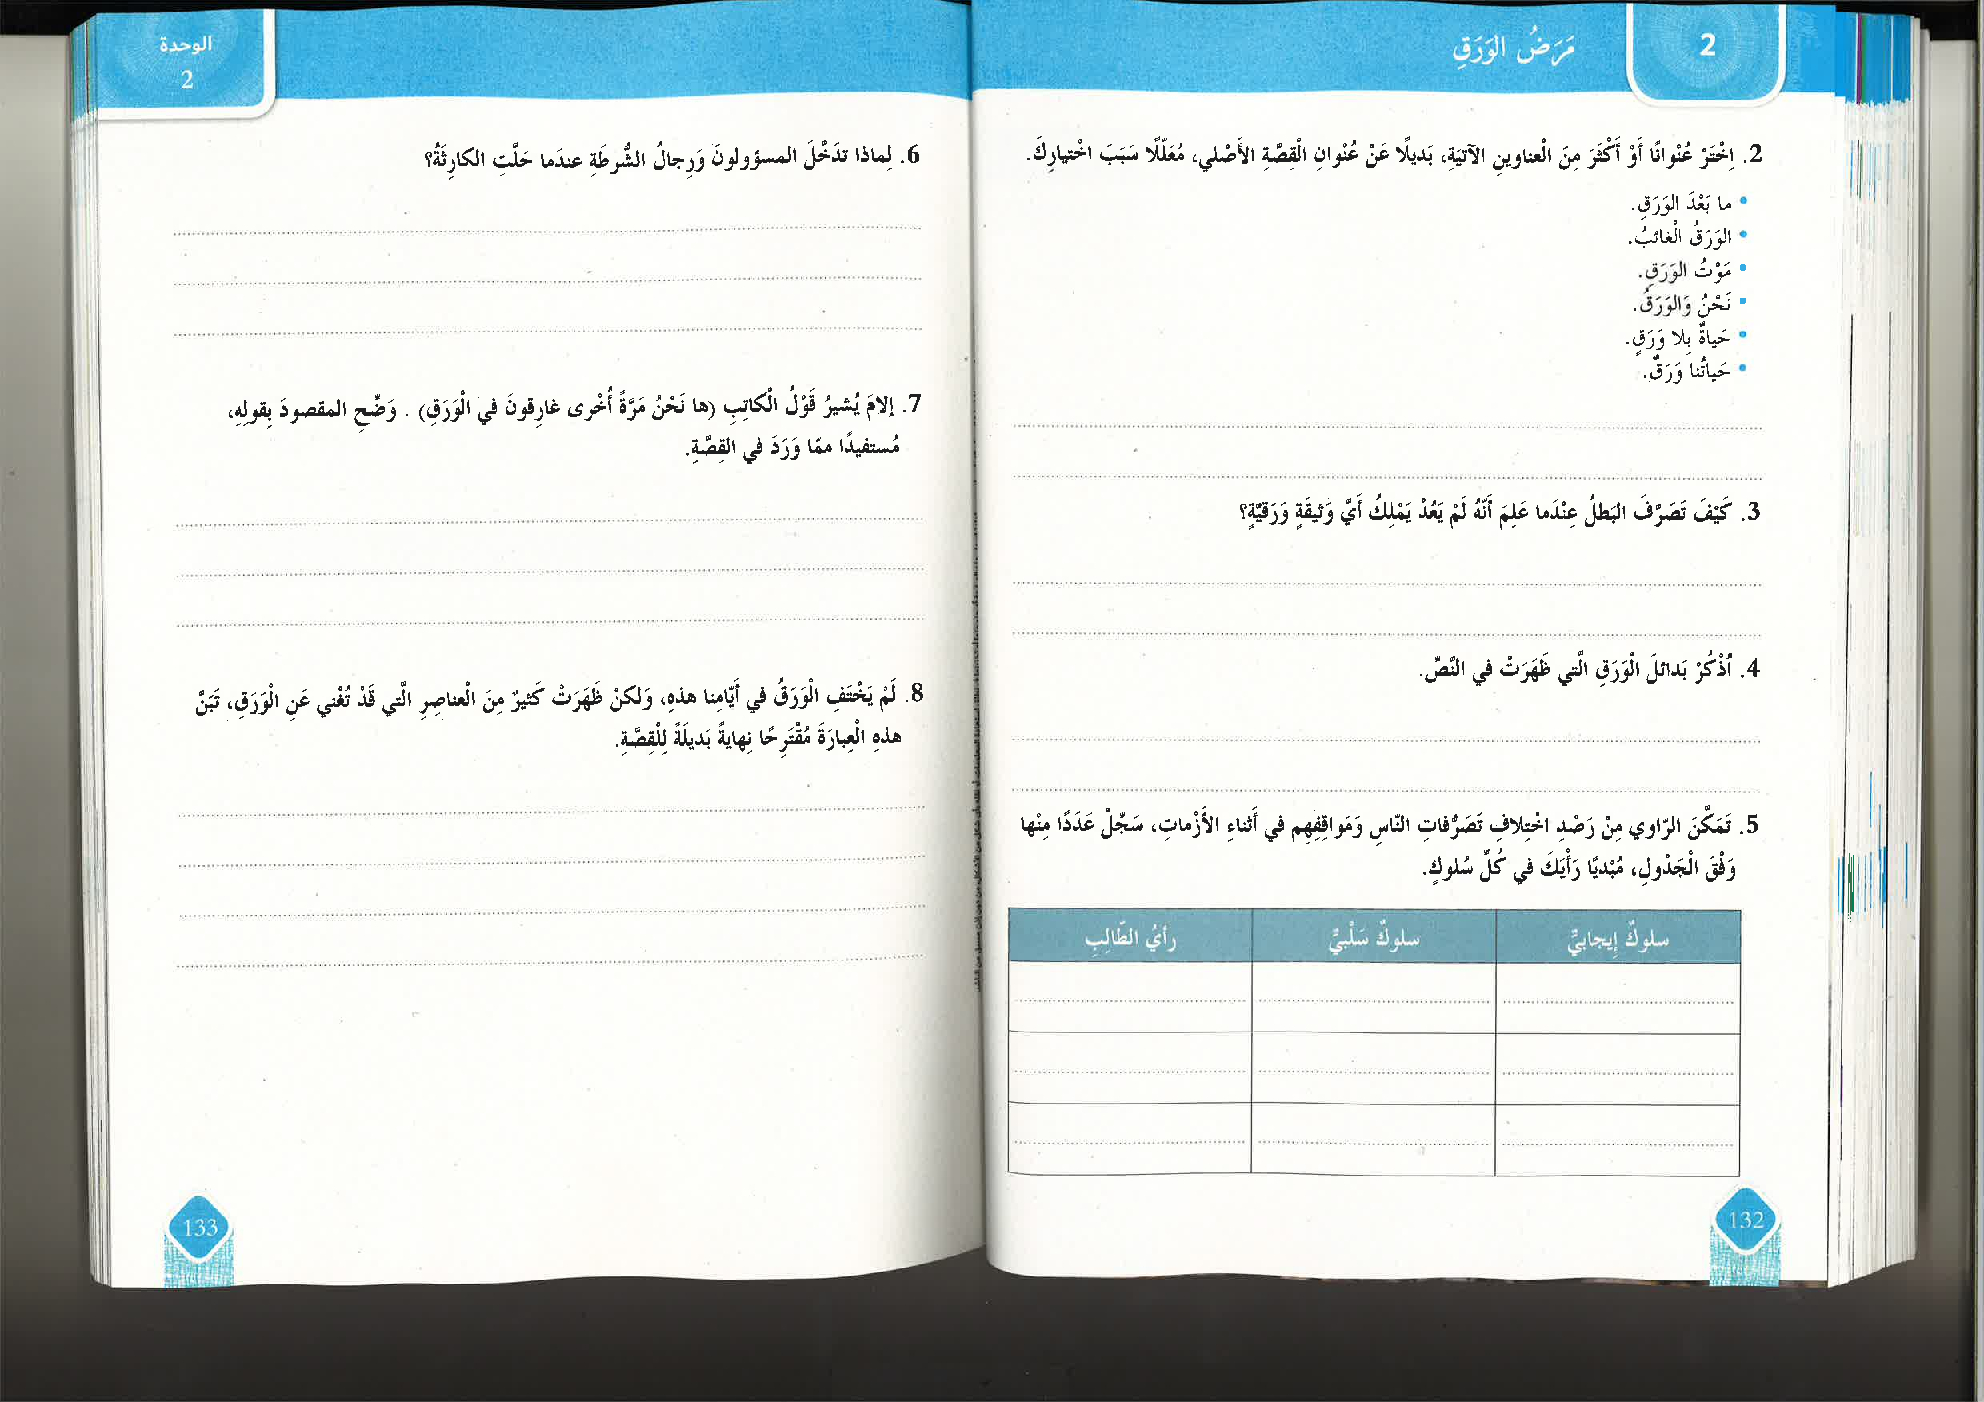 2
مَرَضُ الوَرَقِ
2. اِخْتَرْ عُنْوانًا أَوْ أَكْثَرَ مِنَ الْعناوينِ الآتيَةِ، بَديلًا عَنْ عُنْوانِ الْقِصَّةِ الأَصْلي، مُعَلّلًا سَبَبَ اخْتيارِكَ.
• ما بَعْدَ الوَرَقِ.
• الوَرَقُ الْغائبُ.
• مَوْتُ الوَرَقِ.
• نَحْنُ وَالوَرَقُ.
• حَياةٌ بِلا وَرَقٍ.
• حَياتُنا وَرَقٌ.
3. كَيْفَ تَصَرَّفَ البَطلُ عِنْدَما عَلِمَ أَنَّهُ لَمْ يَعُدْ يَمْلِكُ أَيَّ وَثيقَةٍ وَرَقيَّةٍ؟
4. اُذْكُرْ بَدائلَ الْوَرَقِ الَّتي ظَهَرَتْ في النَّصِّ.
5. تَمَكَّنَ الرّاوي مِنْ رَصْدِ اخْتِلافِ تَصَرُّفاتِ النّاسِ وَمَواقِفِهِم في أَثناءِ الأَزْماتِ، سَجّلْ عَدَدًا مِنْها
وَفْقَ الْجَدْولِ، مُبْديًا رَأْيَكَ في كُلِّ سُلوكٍ.
سلوكٌ إيجابيٌّ	سلوكٌ سَلْبيٌّ	رأيُ الطّالِبِ
132
الوحدة
2
6. لِماذا تدَخَّلَ المسؤولونَ وَرِجالُ الشُّرطَةِ عندَما حَلَّتِ الكارِثَةُ؟
7. إلامَ يُشيرُ قَوْلُ الْكاتِبِ (ها نَحْنُ مَرَّةً أُخْرى غارِقونَ في الْوَرَقِ) . وَضِّحِ المقصودَ بِقولِهِ،
مُستفيدًا ممّا وَرَدَ في القِصَّةِ.
8. لَمْ يَخْتَفِ الْوَرَقُ في أَيّامِنا هذهِ، وَلكنْ ظَهَرَتْ كَثيرٌ مِنَ الْعناصِرِ الَّتي قَدْ تُغْني عَنِ الْوَرَقِ، تَبَنَّ
هذهِ الْعِبارَةَ مُقْتَرِحًا نِهايةً بَديلَةً لِلْقِصَّةِ.
133